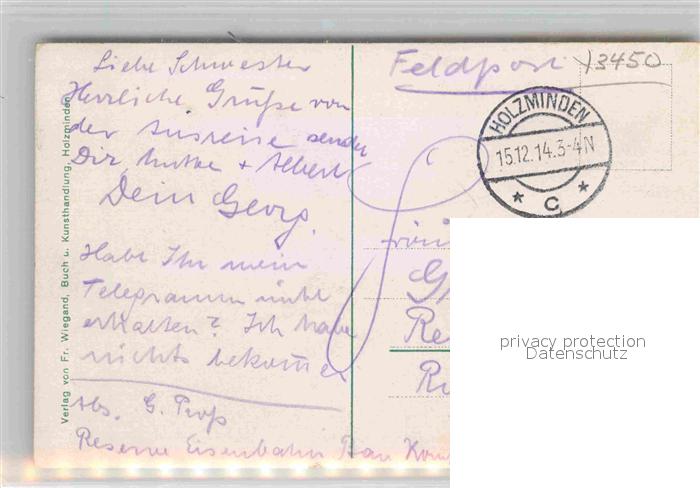 Liebe Schwester
Herzliche Grüße von
der Ausreise sendet
Dir Mutter + Albert
Dein Georg.
Habt Ihr mein
Telegramm nicht
erhalten? Ich habe
nichts bekommen
Abs. G.
Reserve Eisenbahn Bau
Verlag von Fr. Wiegand, Buch u. Kunsthandlung, Holzminden
Feldpost
13450
HOLZMINDEN
15.12.14.3-4N
* C *
privacy protection
Datenschutz